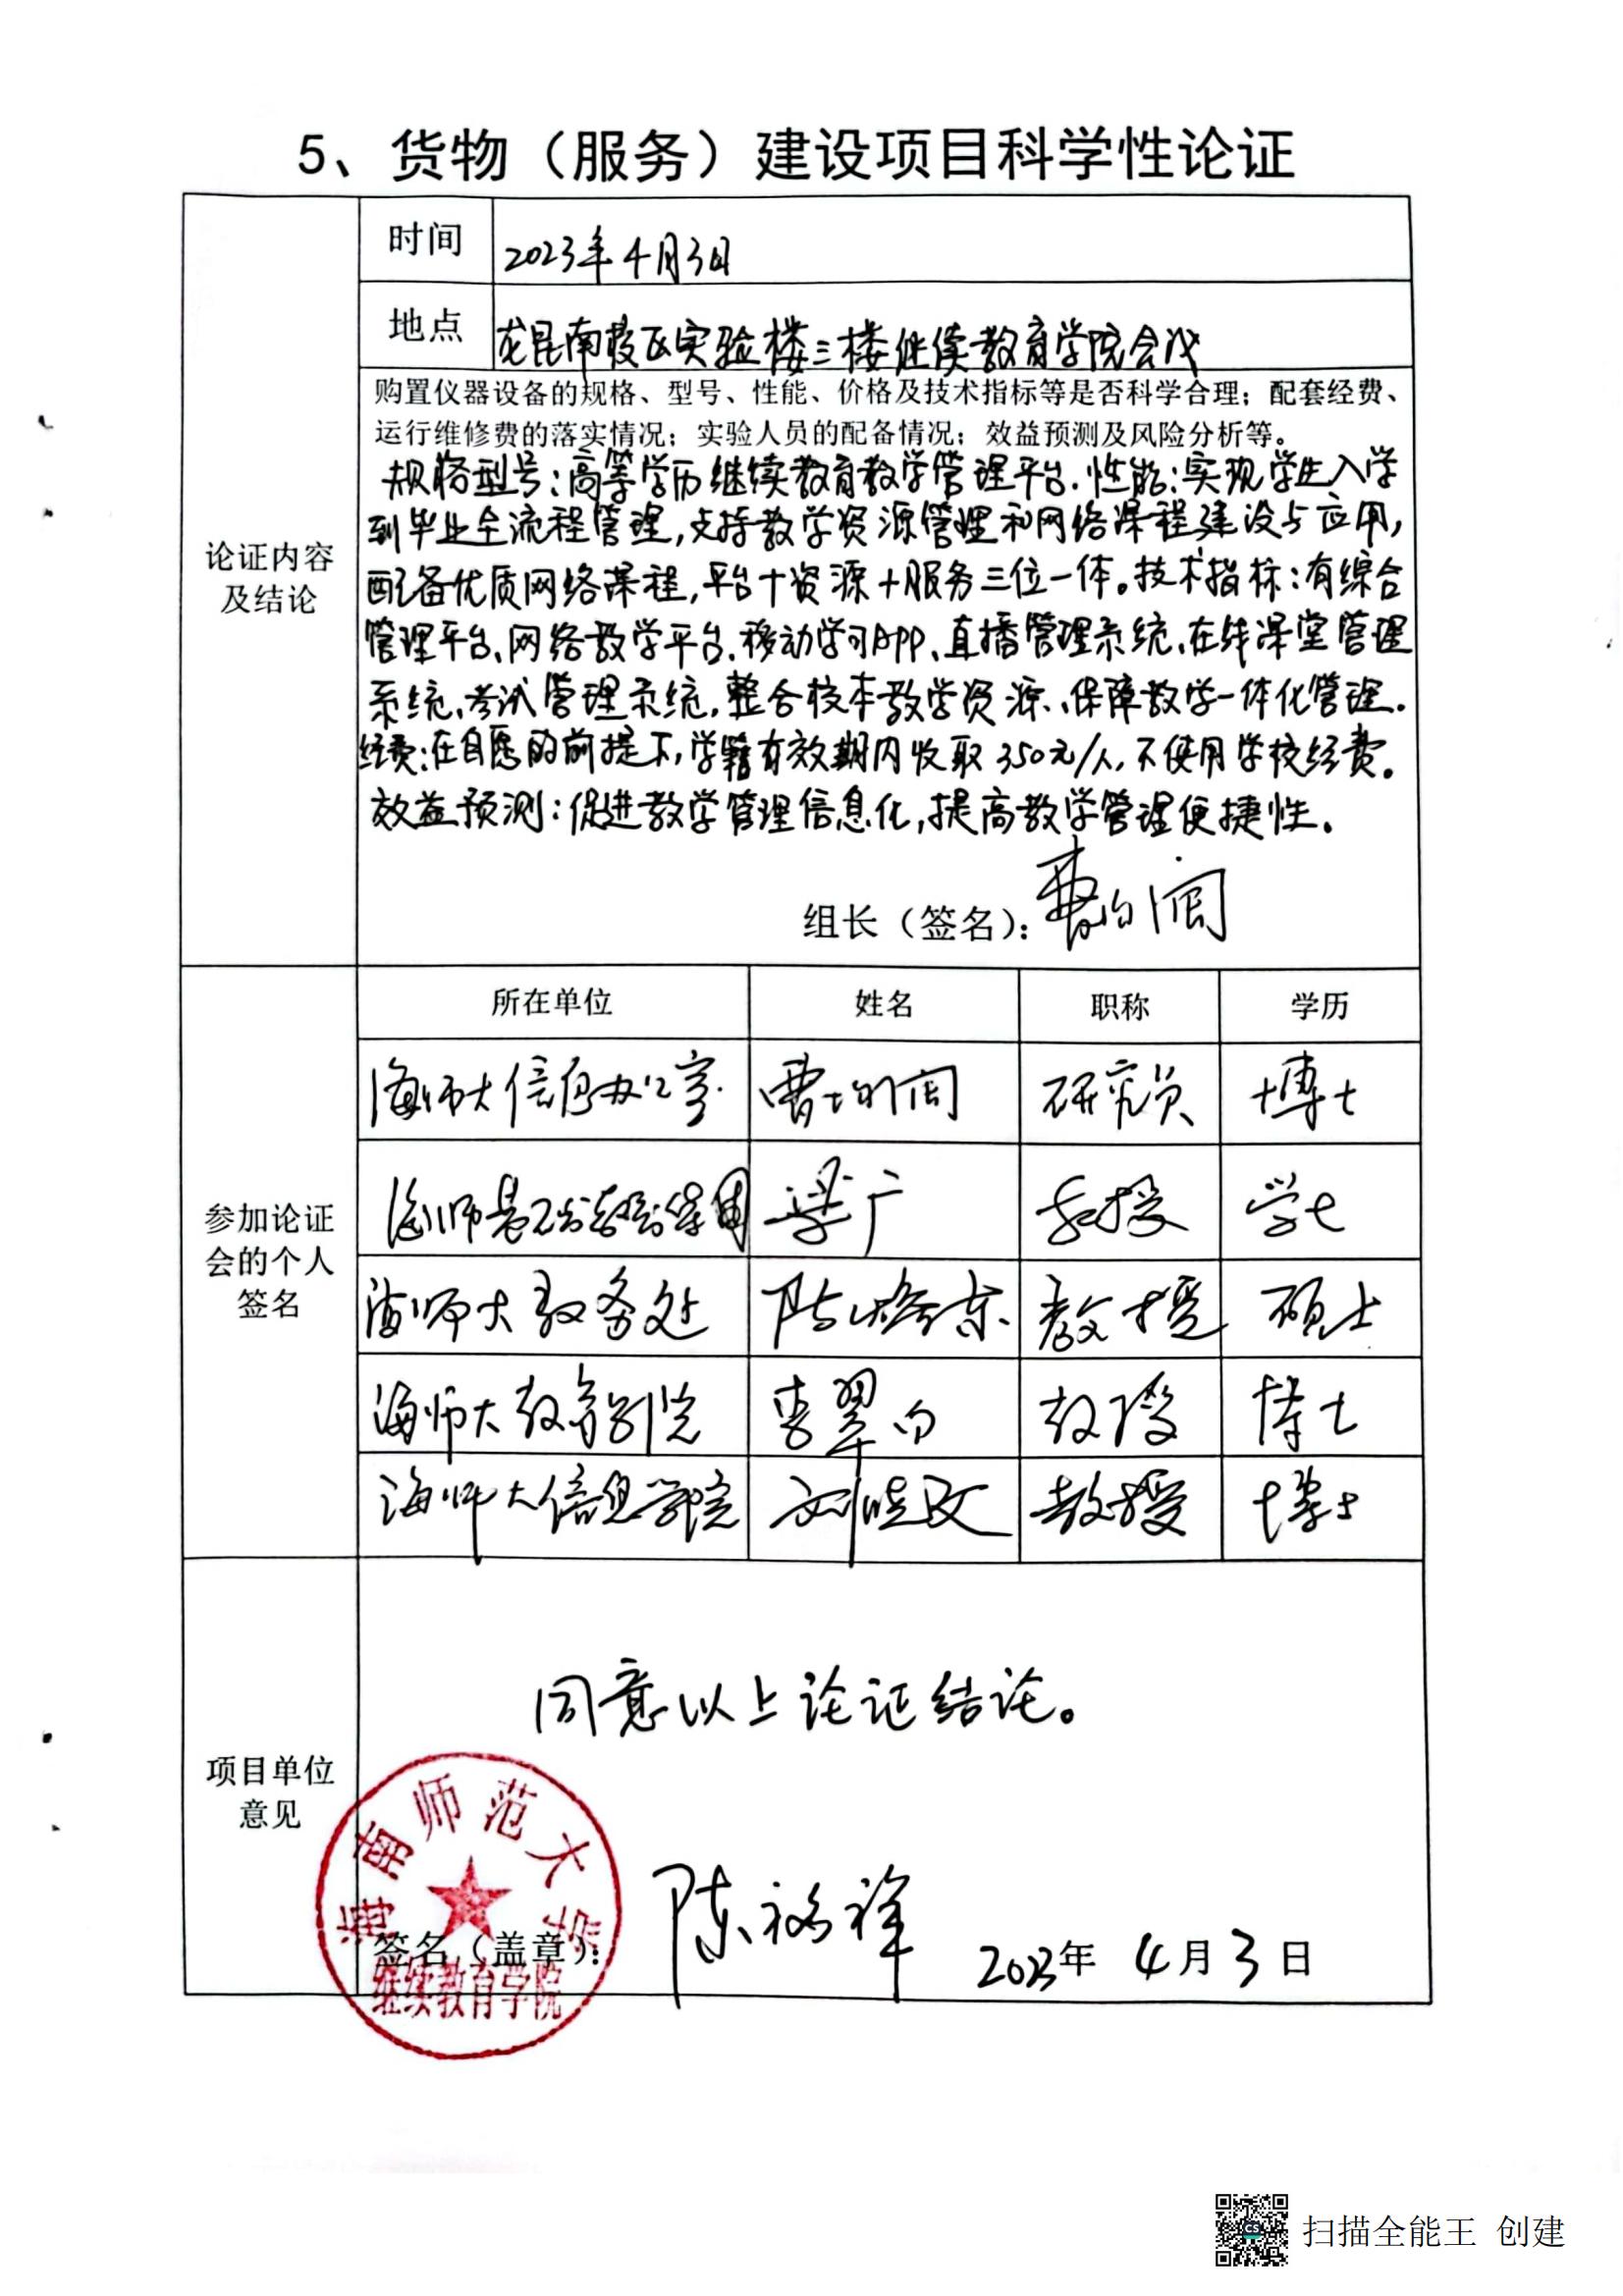 5、货物（服务）建设项目科学性论证
时间
2023年4月3日
地点
龙昆南校区实验楼三楼继续教育学院会议
论证内容
及结论
购置仪器设备的规格、型号、性能、价格及技术指标等是否科学合理；配套经费、
运行维修费的落实情况；实验人员的配备情况；效益预测及风险分析等。
规格型号：高等学历继续教育教学管理平台.性能：实现学生入学
到毕业全流程管理，支持教学资源管理和网络课程建设与应用，
配备优质网络课程，平台+资源+服务三位一体。技术指标：有综合
管理平台、网络教学平台、移动学习APP、直播管理系统、在线课堂管理
系统、考试管理系统，整合校本教学资源、保障教学一体化管理。
经费：在自愿的前提下，学籍有效期内收取350元/人，不使用学校经费。
效益预测：促进教学管理信息化，提高教学管理便捷性。
组长（签名）：曹均阔
参加论证
会的个人
签名
所在单位 姓名 职称 学历
海师大信息办公室 曹均阔 研究员 博士
海师 梁广 教授 学士
海师大教务处 陈 东 教授 硕士
海师大教育学院 李翠白 教授 博士
海师大信息学院 刘晓文 教授 博士
项目单位
意见
同意以上论证结论。
海南师范大学
继续教育学院
签名（盖章）： 陈 祥 2023年 4月3日
扫描全能王 创建